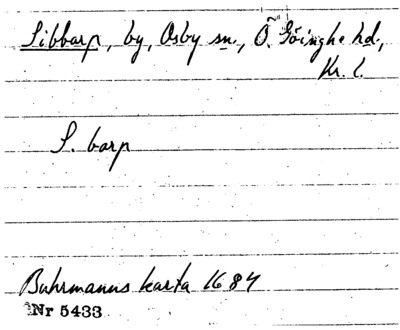 Sibbarp, by, Osby sn., Ö. Göinghe hd.,
Kr. l.
S. barp
Buhrmanns karta 1684
Nr 5433